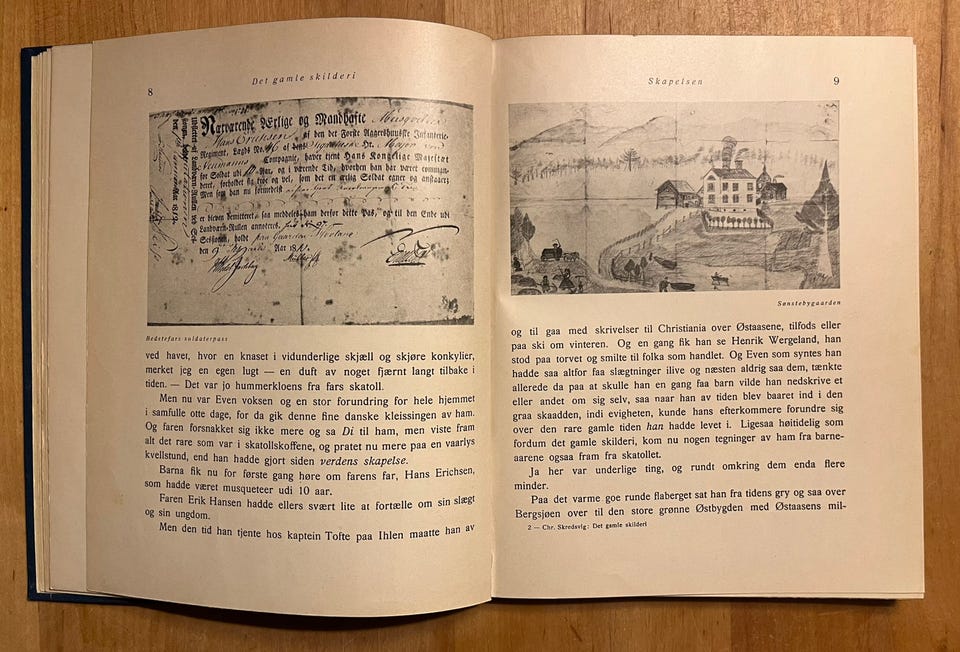 8
Det gamle skilderi
Nærværende Ærlige og Mandhafte
Hans Erichsen af den det Første Aggershuusske Infanterie-
Regiment, Lægds No. 46 af
Neumanns Compagnie, haver tjent Hans Kongelige Majestæt
for Soldat udi 10 Aar, og i værende Tid, hvorhen han har været comman-
deret, forholdet sig troe og vel, som det en ærlig Soldat egner og anstaaer;
Men som han nu formedelst
er bleven demitteret, saa meddeles ham derfor dette Pas, og til den Ende udi
Landværn-Rullen annoteret
Sessionen, holdt paa
den 9 Aar 18
Bedstefars soldaterpass
ved havet, hvor en knaset i vidunderlige skjæll og skjøre konkylier,
merket jeg en egen lugt — en duft av noget fjærnt langt tilbake i
tiden. — Det var jo hummerkloens fra fars skatoll.
Men nu var Even voksen og en stor forundring for hele hjemmet
i samfulle otte dage, for da gik denne fine danske kleissingen av ham.
Og faren forsnakket sig ikke mere og sa Di til ham, men viste fram
alt det rare som var i skatollskoffene, og pratet nu mere paa en vaarlys
kvellstund, end han hadde gjort siden verdens skapelse.
Barna fik nu for første gang høre om farens far, Hans Erichsen,
som hadde været musqueteer udi 10 aar.
Faren Erik Hansen hadde ellers svært lite at fortælle om sin slægt
og sin ungdom.
Men den tid han tjente hos kaptein Tofte paa Ihlen maatte han av
Skapelsen
9
Sønstebygaarden
og til gaa med skrivelser til Christiania over Østaasene, tilfods eller
paa ski om vinteren. Og en gang fik han se Henrik Wergeland, han
stod paa torvet og smilte til folka som handlet. Og Even som syntes han
hadde saa altfor faa slægtninger ilive og næsten aldrig saa dem, tænkte
allerede da paa at skulle han en gang faa barn vilde han nedskrive et
eller andet om sig selv, saa naar han av tiden blev baaret ind i den
graa skaadden, indi evigheten, kunde hans efterkommere forundre sig
over den rare gamle tiden han hadde levet i. Ligesaa høitidelig som
fordum det gamle skilderi, kom nu nogen tegninger av ham fra barne-
aarene ogsaa fram fra skatollet.
Ja her var underlige ting, og rundt omkring dem enda flere
minder.
Paa det varme goe runde flaberget sat han fra tidens gry og saa over
Bergsjøen over til den store grønne Østbygden med Østaasens mil-
2 — Chr. Skredsvig: Det gamle skilderi